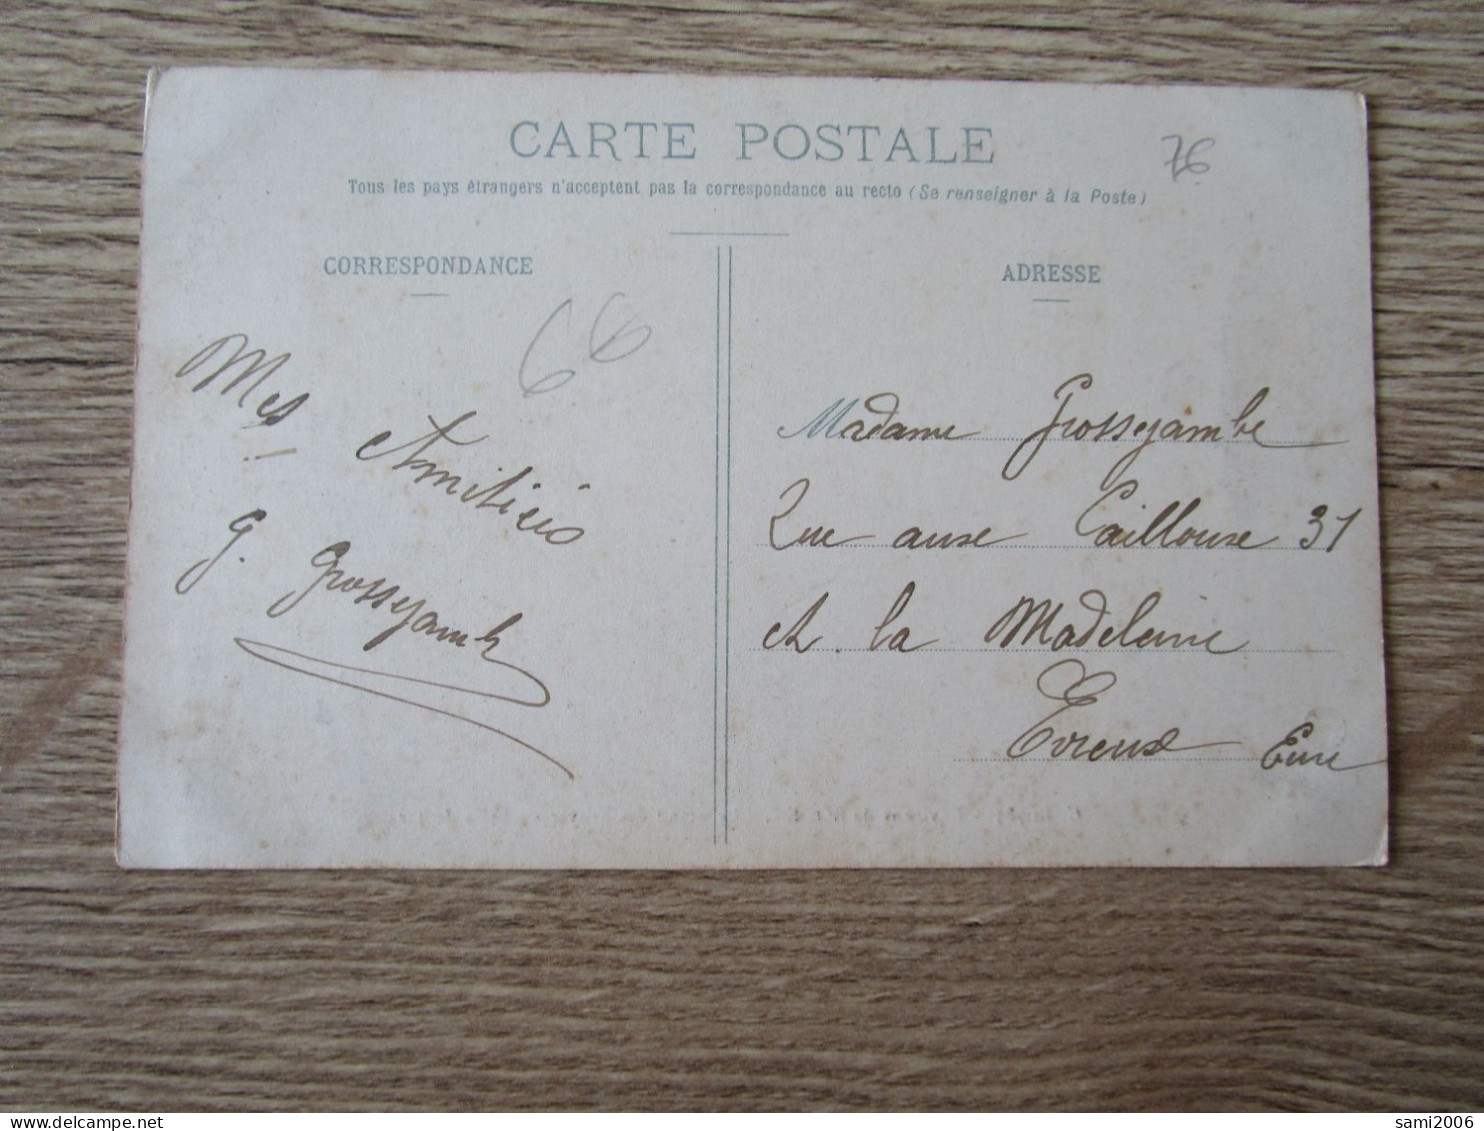 CARTE POSTALE
76
Tous les pays étrangers n'acceptent pas la correspondance au recto (Se renseigner à la Poste)
CORRESPONDANCE
ADRESSE
66
Mes
Amitiés
G. Grossejamb
Madame Grossejambe
Rue aux Cailloux 31
et la Madeleine
Evreux Eure
sami2006